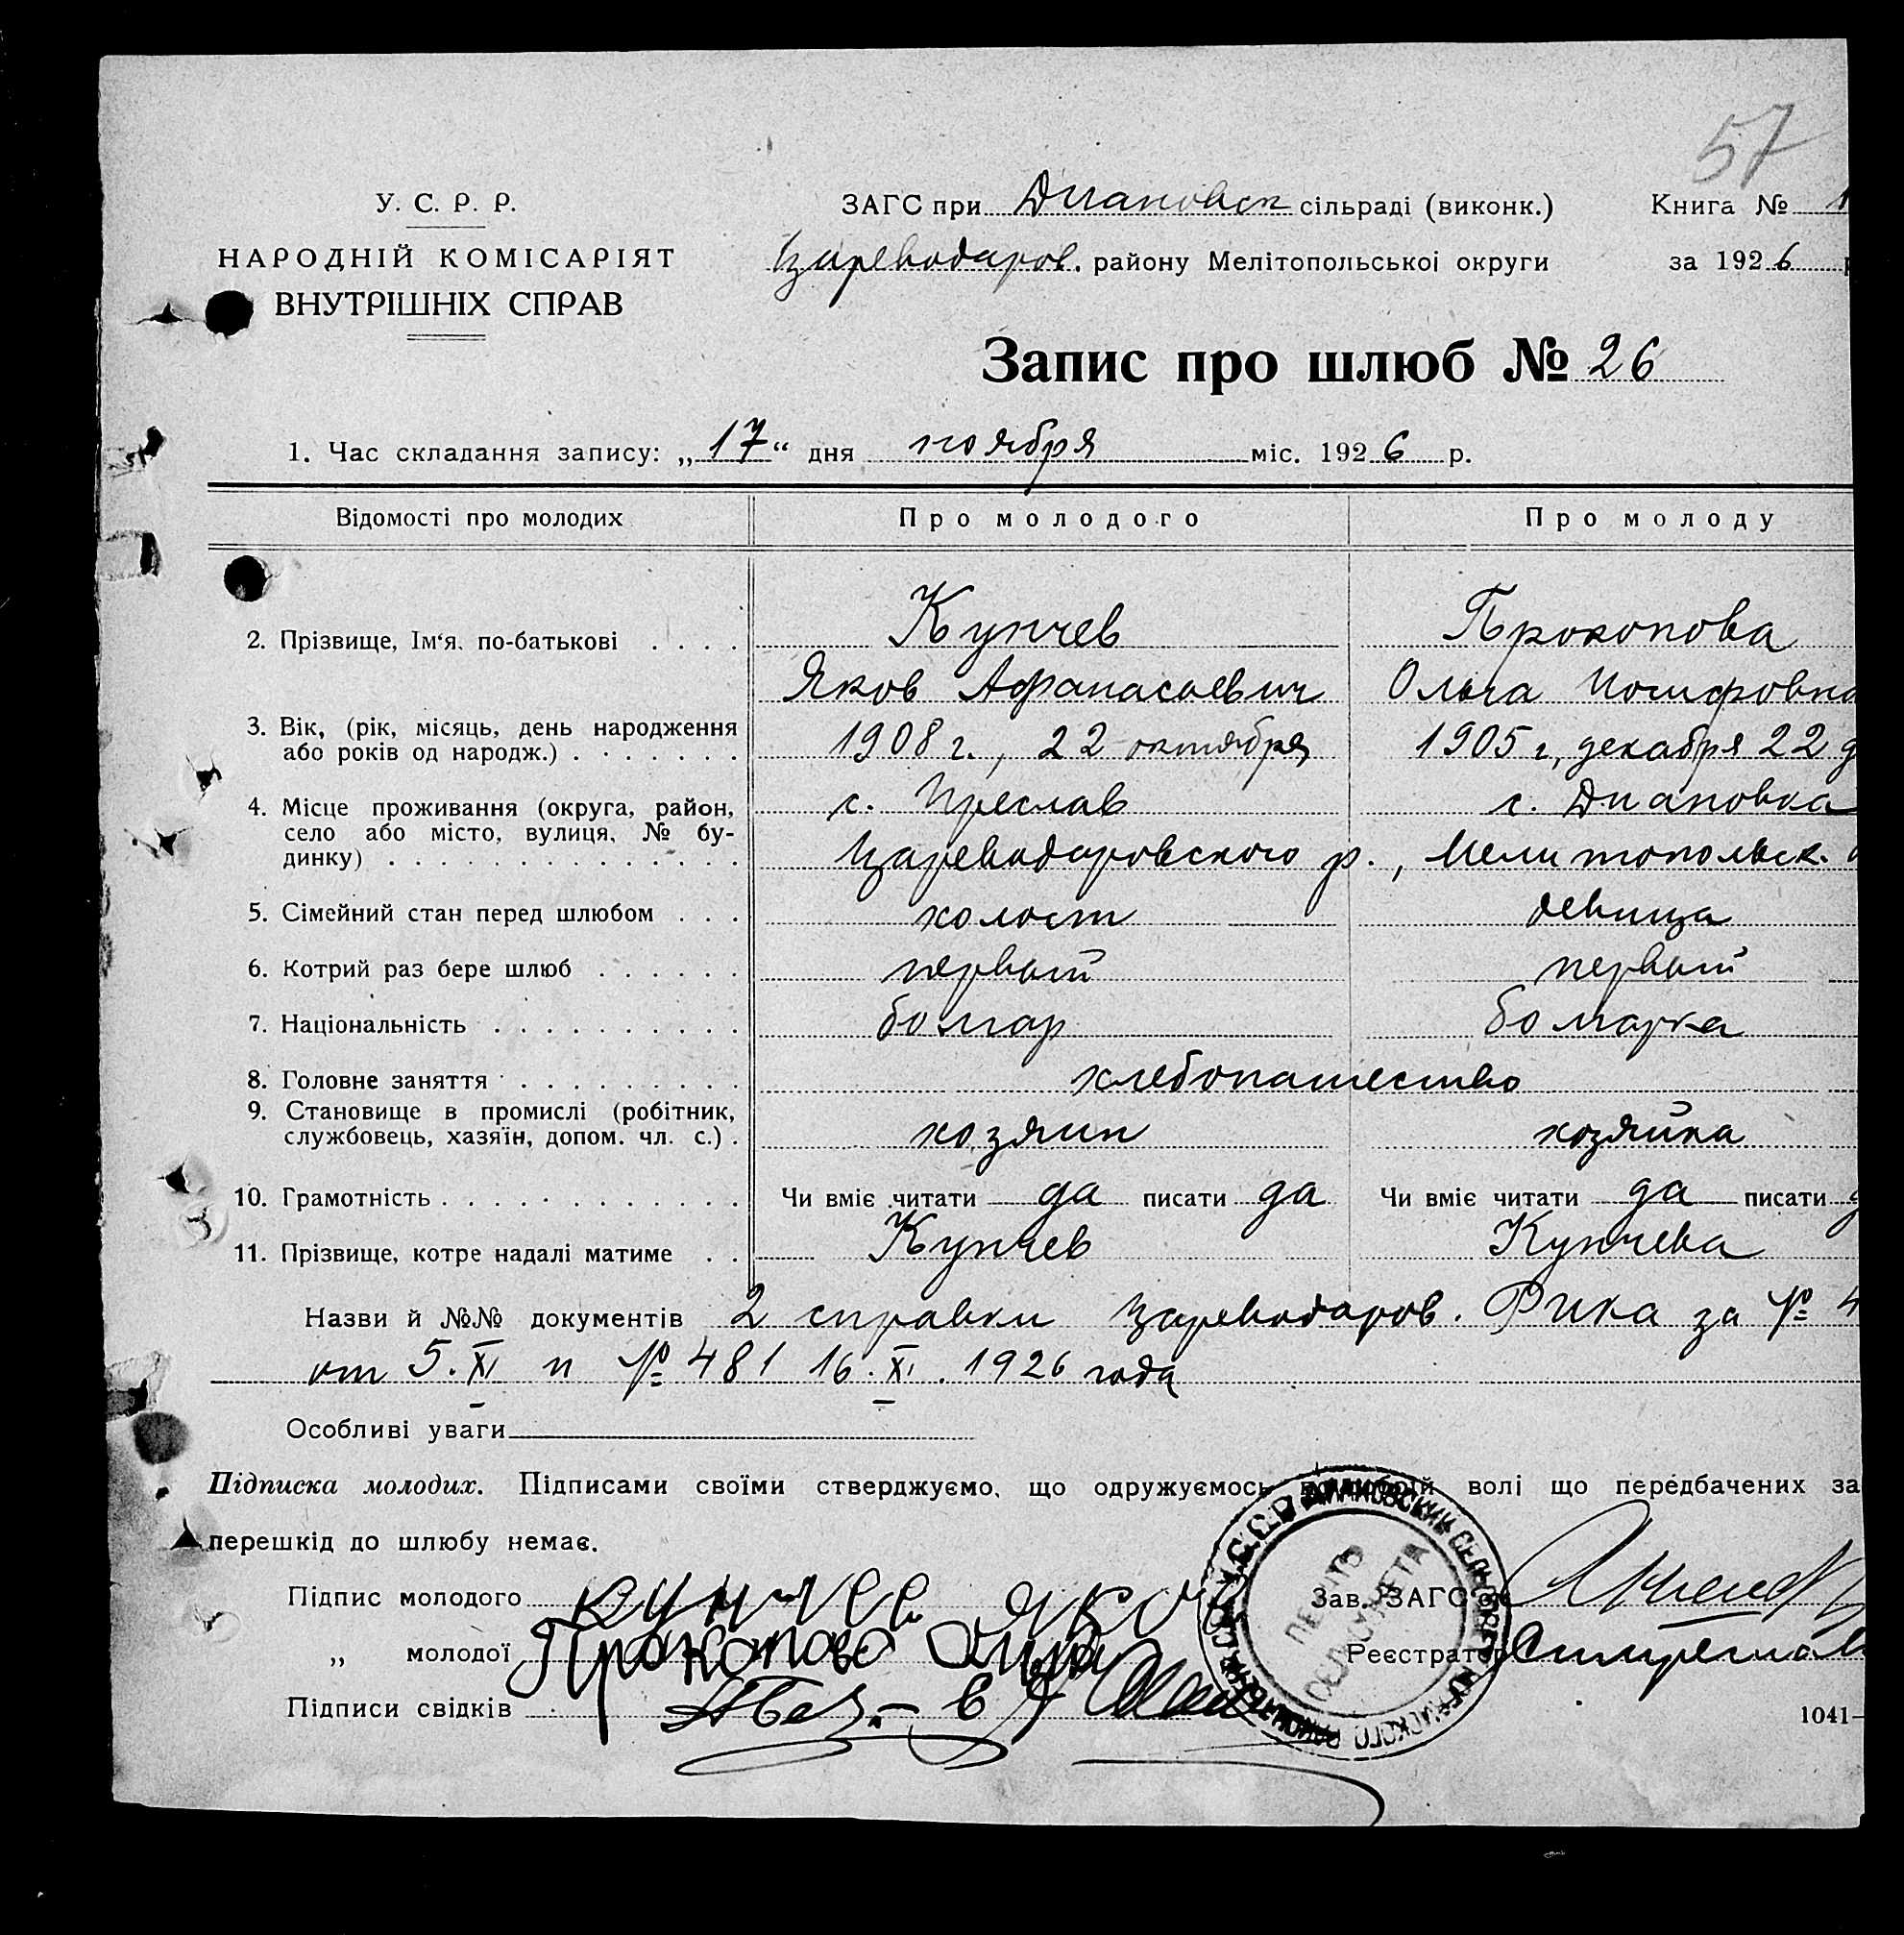 57
У. С. Р. Р.
НАРОДНІЙ КОМІСАРІЯТ
ВНУТРІШНІХ СПРАВ
ЗАГС при Диановск сільраді (виконк.)
Книга № 1
Цареводаров. району Мелітопольськоі округи
за 1926
Запис про шлюб № 26
1. Час складання запису: „17“ дня ноября міс. 1926 р.
Відомості про молодих Про молодого Про молоду
2. Прізвище, Ім‘я, по-батькові Купчев Прокопова
Яков Афанасьевич Ольга Иосифовна
3. Вік, (рік, місяць, день народження
або років од народж.) 1908 г., 22 октября 1905 г., декабря 22 д
4. Місце проживання (округа, район, с. Преслав с. Диановка
село або місто, вулиця, № бу-
динку) Цареводаровского р., Мелитопольск.
5. Сімейний стан перед шлюбом холост девица
6. Котрий раз бере шлюб первый первый
7. Національність болгар болгарка
8. Головне заняття хлебопашество
9. Становище в промислі (робітник,
службовець, хазяїн, допом. чл. с.) хозяин хозяйка
10. Грамотність Чи вміє читати да писати да Чи вміє читати да писати д
11. Прізвище, котре надалі матиме Купчев Купчева
Назви й №№ документів 2 справки Цареводаров. Рика за № 4
от 5.XI и № 481 16.XI.1926 года
Особливі уваги
Підписка молодих. Підписами своїми стверджуємо, що одружуємось по добрій волі що передбачених за
перешкід до шлюбу немає.
Підпис молодого Купчев Яков
„ молодої Прокопова
Підписи свідків
Зав. ЗАГС'ом
Реєстратор
ПЕЧАТЬ
СЕЛЬСОВЕТА
1041—